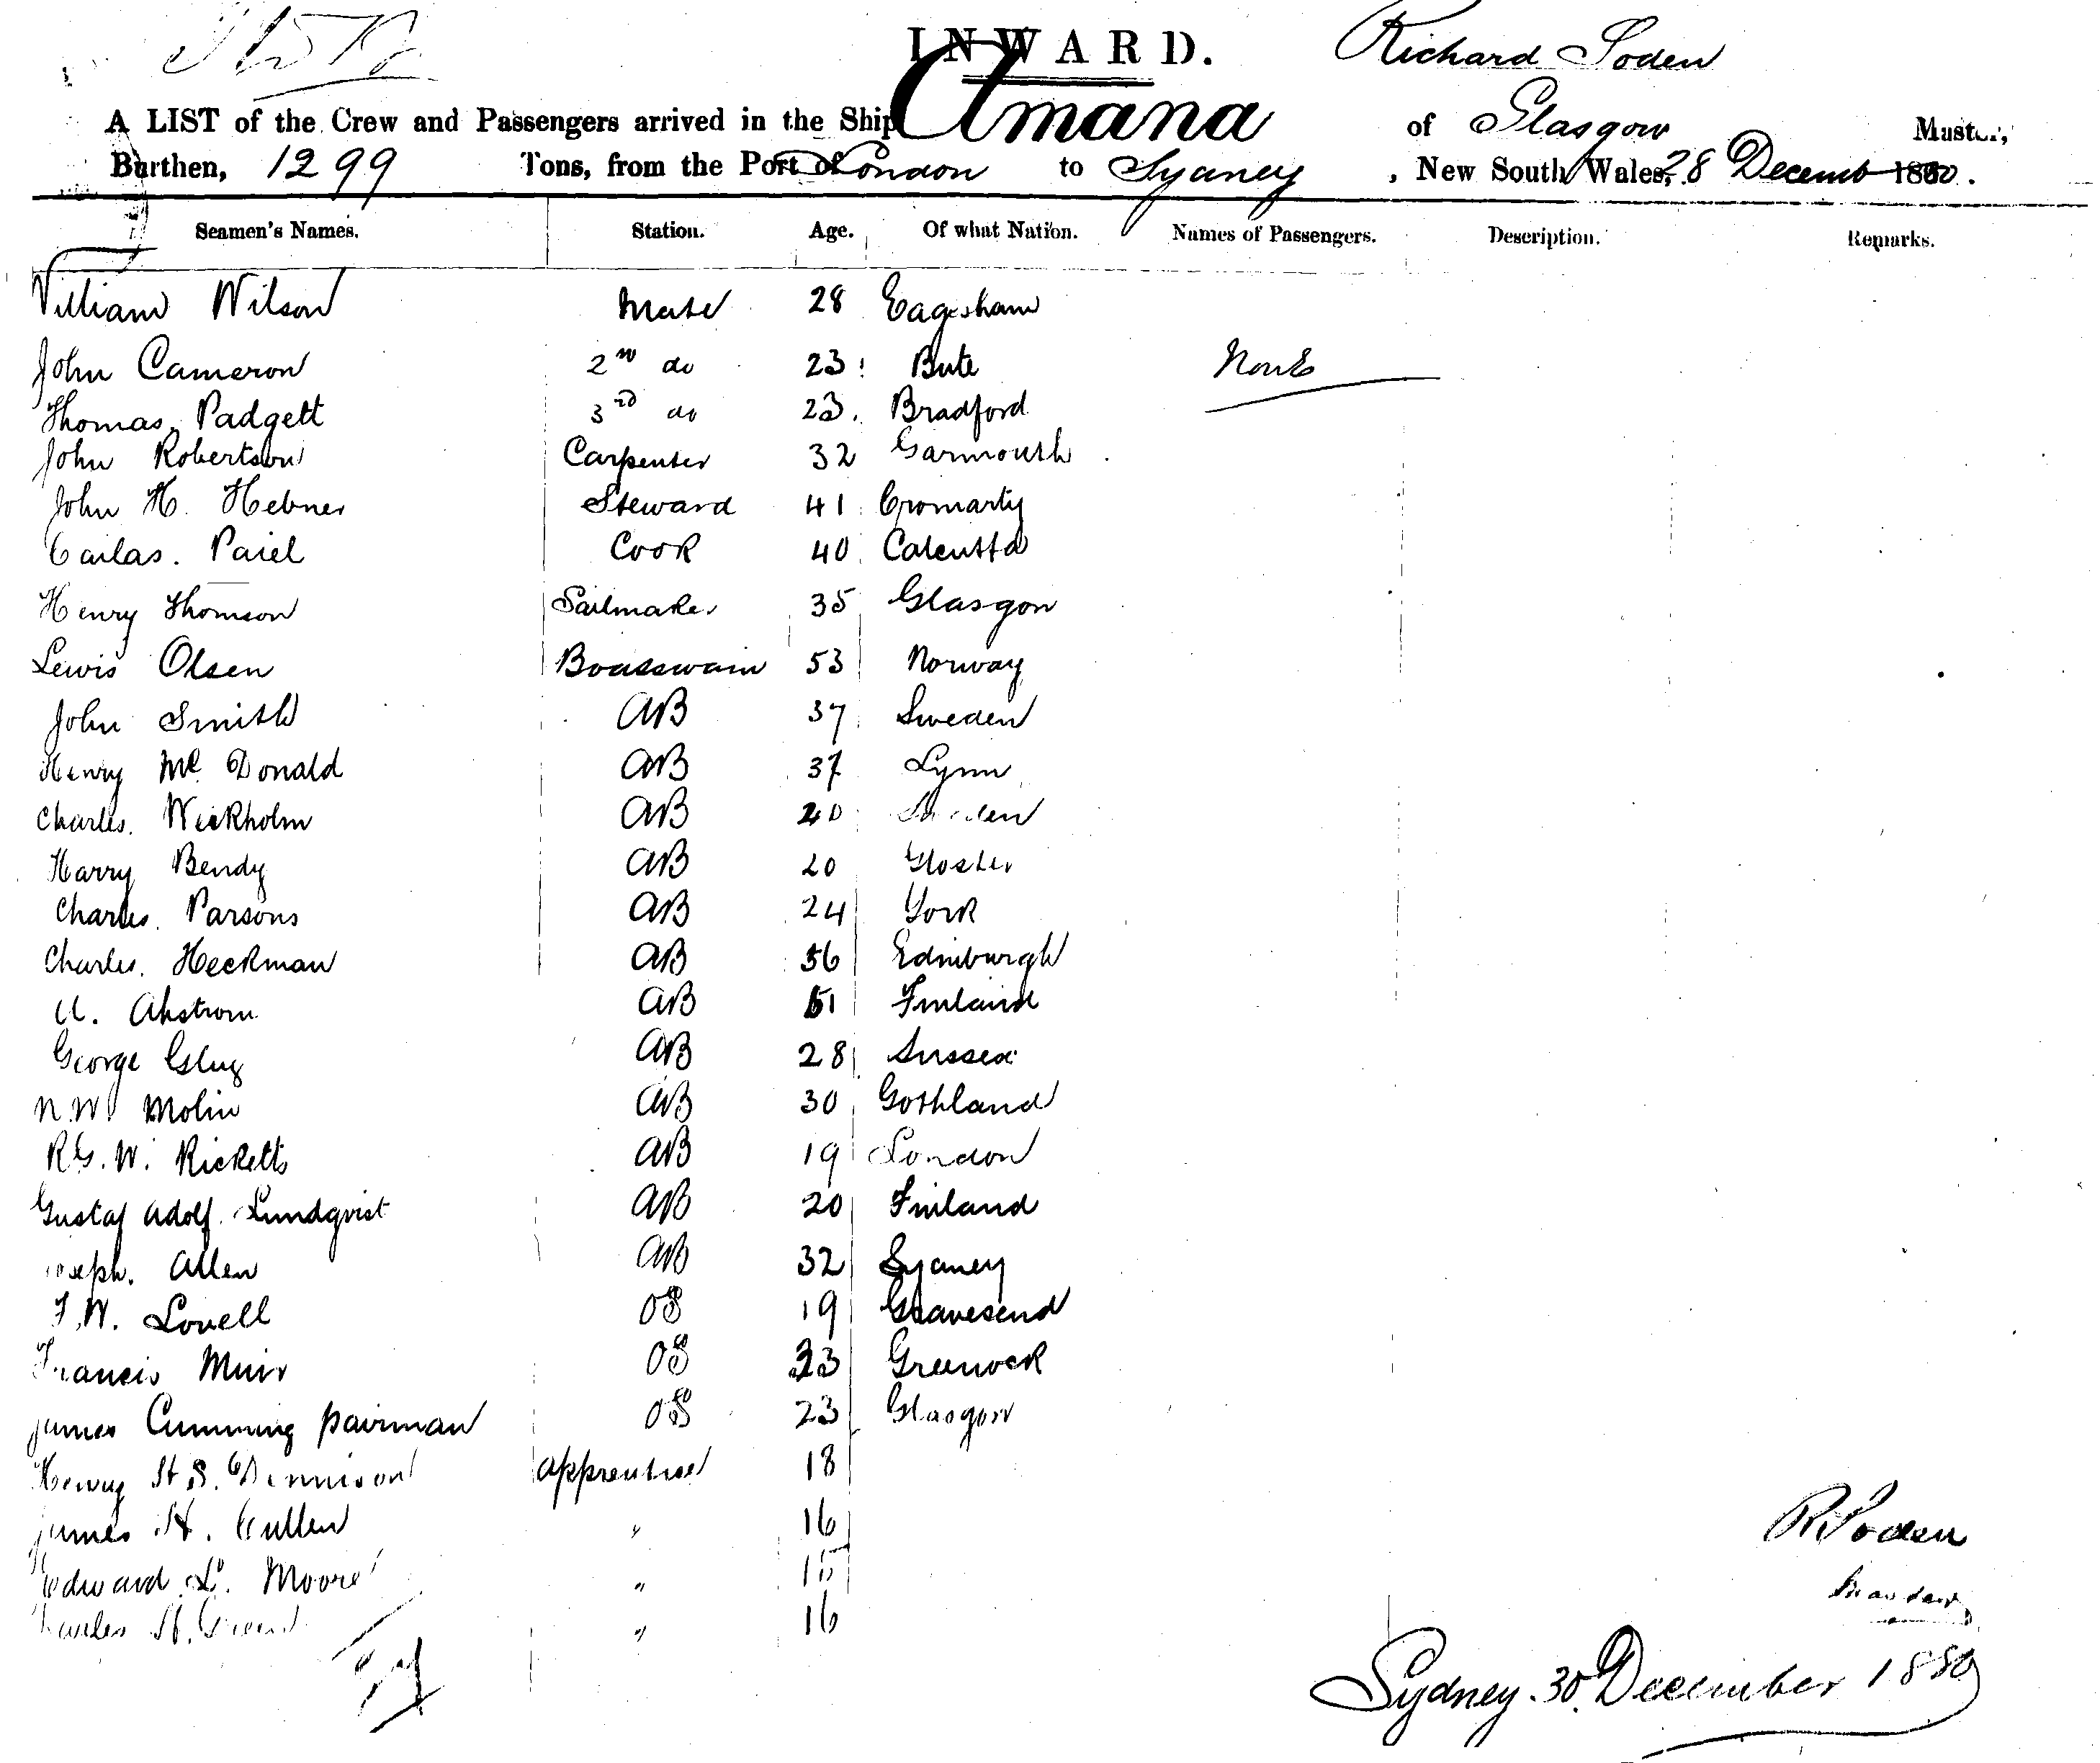 INWARD.
Richard Soden
A LIST of the Crew and Passengers arrived in the Ship Amana of Glasgow Master,
Burthen, 1299 Tons, from the Port of London to Sydney, New South Wales, 28 Decemb 1880.
Seamen's Names. Station. Age. Of what Nation. Names of Passengers. Description. Remarks.
William Wilson Mate 28 Eagesham
John Cameron 2nd do 23 Bute None
Thomas Padgett 3rd do 23. Bradford
John Robertson Carpenter 32 Garmouth
John H. Hebner Steward 41 Cromarty
Cailas. Paiel Cook 40 Calcutta
Henry Thomson Sailmaker 35 Glasgow
Lewis Olsen Boatswain 53 Norway
John Smith AB 37 Sweden
Henry Mc Donald AB 37 Lynn
Charles. Wickholm AB 20 Sweden
Harry Bendy AB 20 Gloster
Charles. Parsons AB 24 York
Charles. Heckman AB 36 Edinburgh
A. Ahstrom AB 51 Finland
George AB 28 Sussex
N.W Molin AB 30 Gothland
R.G.W. Ricketts AB 19 London
Gustaf Adolf. Lundqvist AB 20 Finland
Joseph. Allen AB 32 Sydney
F.W. Lovell OS 19 Gravesend
Francis Muir OS 23 Greenock
James Cumming Pairman OS 23 Glasgow
Henry St S. Dennison Apprentice 18
James H. Cullen " 16
Edward L. Moore " 15
Charles H. Green " 16
R Soden
Master
Sydney. 30. December 1880